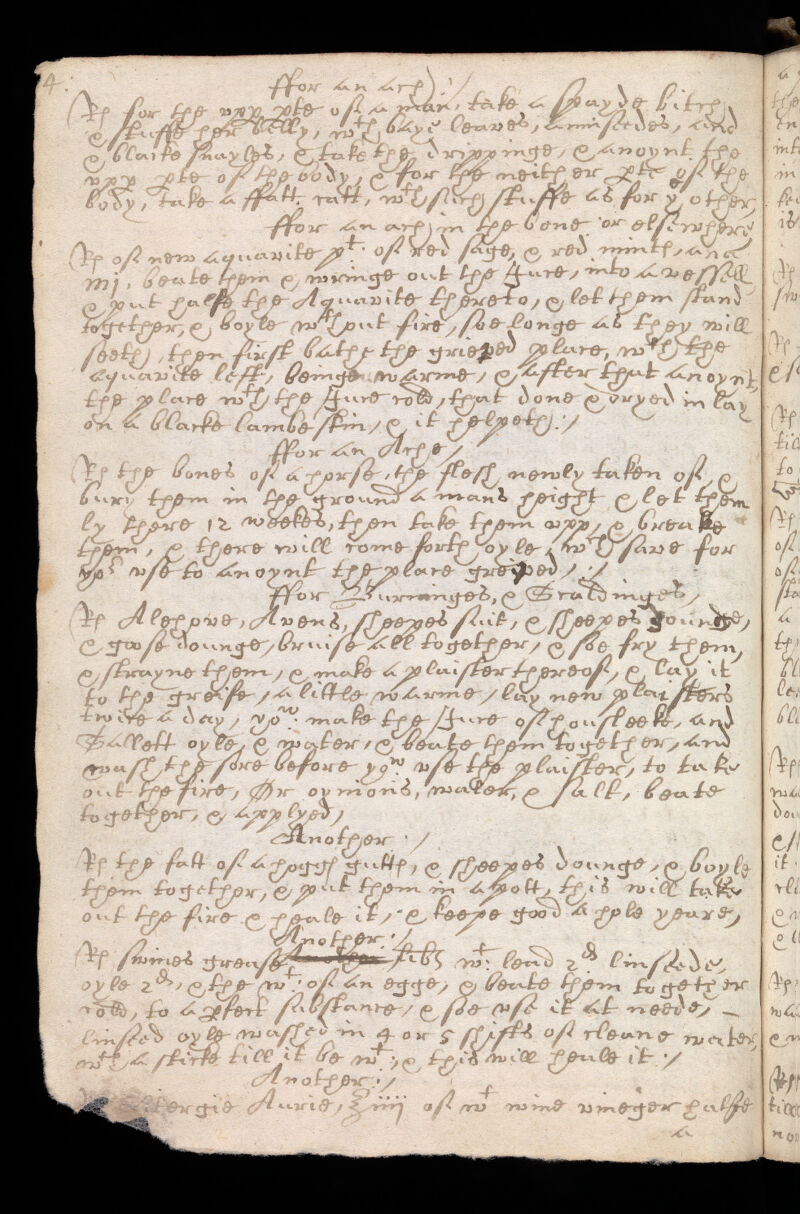 4:
ffor an ach :/
Rx for the vpp pte of a man, take a spayde bitch,
& stuffe her belly, wth baye leaves, anniseedes, and
& blacke snayles, & take the drippinge, & anoynt the
vpp pte of the body, & for the neither pte of the
body, take a ffatt catt, wth such stuffe as for ye other,
ffor an ach in the bone or elsewhere,
Rx of new aquavite pt: of red sage, & red minth, ana
mj, beate them & wringe out the Juce, into a vessell
& put halfe the Aquavite thereto, & let them stand
together, & boyle wthout fire, soe longe as they will
seeth, then first bathe the grieved place, wth the
aquavite left, beinge warme, & after that anoynt,
the place wth the Juce cold, that done & dryed in lay
on a blacke lambe skin, & it helpeth :/
ffor an Ache /
Rx the bones of a horse, the flesh newly taken of, &
bury them in the ground a mans height & let them
ly there 12 weekes, then take them vpp, & breake
them, & there will come forth oyle, wch save for
yor vse to anoynt the place greived, :/
ffor Burninges, & Scaldinges,
Rx Alehove, Avens, sheepes suit, & sheepes dounge,
& goose dounge, bruise all together, & soe fry them,
& strayne them, & make a plaister thereof, & lay it
to the greife, a little warme, lay new plaisters
twice a day, yow make the Juce of housleeke, and
Sallett oyle, & water, & beate them together, and
wash the sore before yow vse the plaister, to take
out the fire, Or oynions, water, & salt, beate
together, & applyed,
Another :/
Rx the fatt of a hoggh gutth, & sheepes dounge, & boyle
them together, & put them in a pott, this will take
out the fire & heale it, & keepe good a hole yeare,
Another :/
Rx swines grease libs wt: lead 2ds linseede,
oyle 2ds, & the wt: of an egge, & beate them together
cold, to a pfect substance, & soe vse it at neede, –
linseed oyle washed in 4 or 5 shifts of cleane water,
wth a sticke till it be wt:, & this will heale it :/
Another :/
Litergie Aurie, ℥iiij of wt wine vineger halfe
a